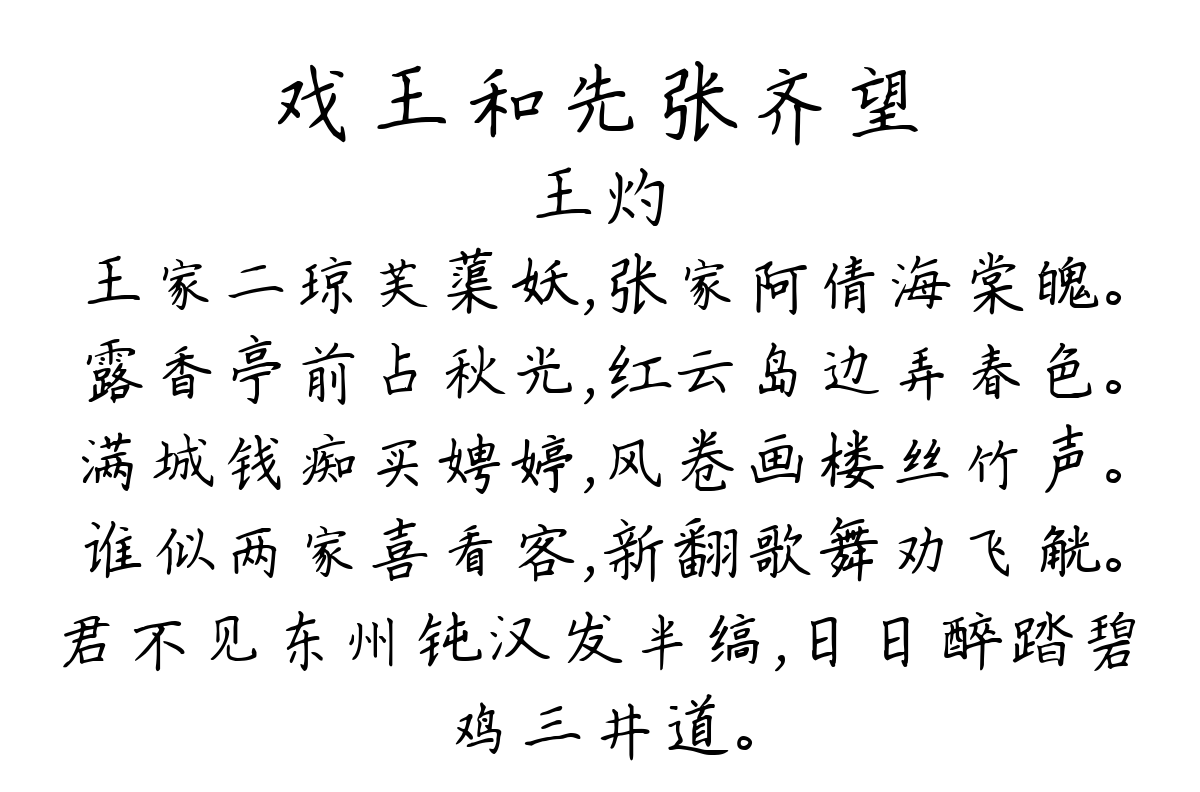 戏王和先张齐望
王灼
王家二琼芙蕖妖,张家阿倩海棠魄。
露香亭前占秋光,红云岛边弄春色。
满城钱痴买娉婷,风卷画楼丝竹声。
谁似两家喜看客,新翻歌舞劝飞觥。
君不见东州钝汉发半缟,日日醉踏碧
鸡三井道。